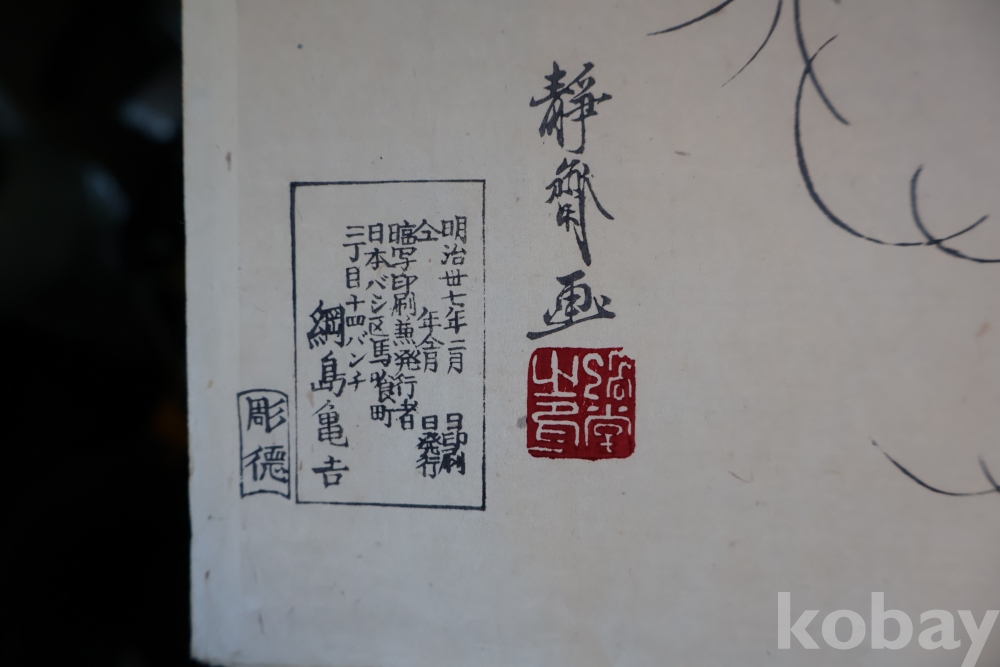 靜齋画
明治卅七年二月　日印刷
仝　年仝月　日発行
臨写印刷兼発行者
日本バシ区馬喰町
三丁目十四バンチ
綱島亀吉
彫德
kobay